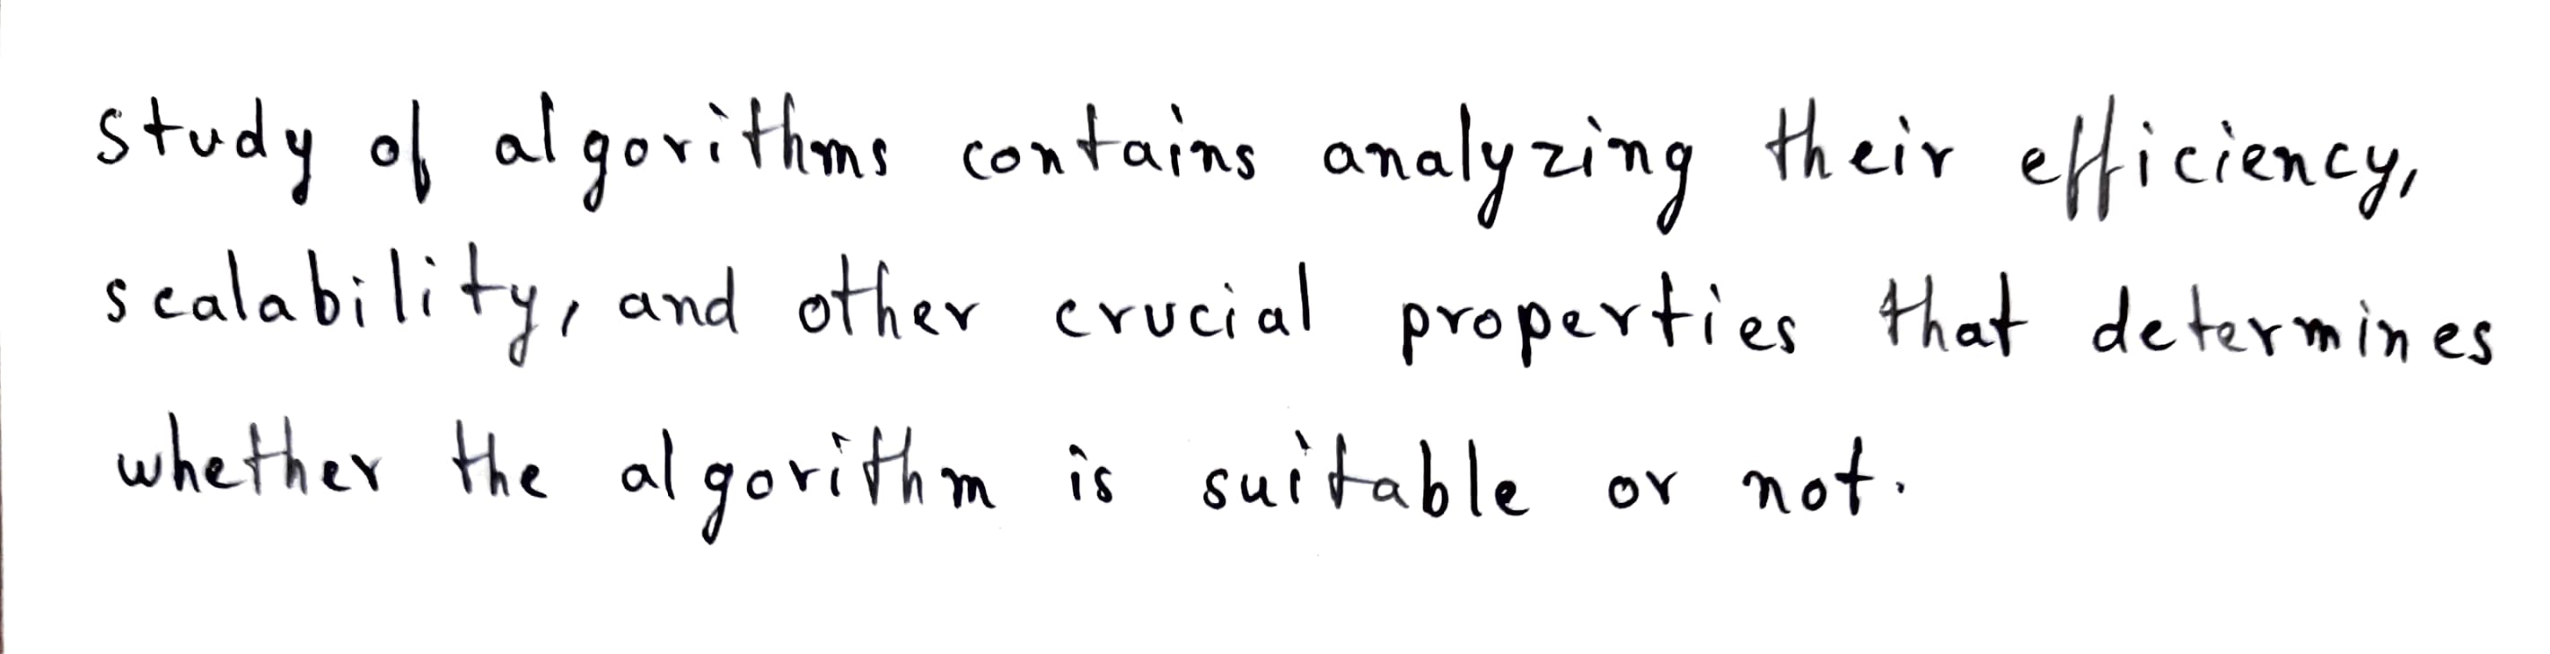 study of algorithms contains analyzing their efficiency,
scalability, and other crucial properties that determines
whether the algorithm is suitable or not.